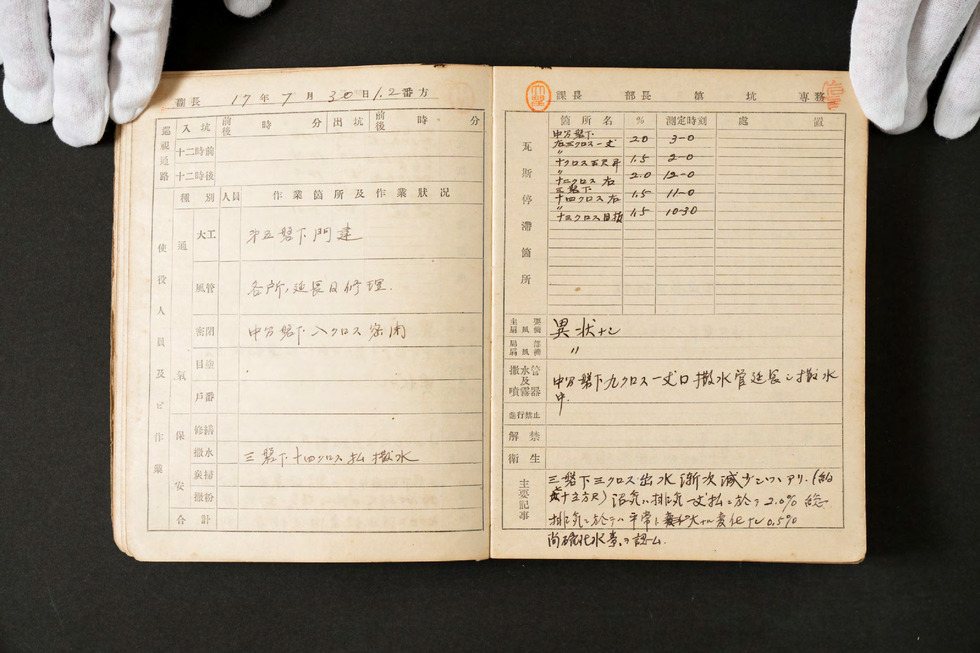 17年7月30日1.2番方
巡視通路 入坑 前後 時 分 出坑 前後 時 分
十二時前
十二時後
使役人員及ビ作業
種別 人員 作業箇所及作業狀况
通氣
大工 第五盤下門建
風管 各所ノ延長及修理.
密閉 中分盤下入クロス密閉
目塗
戸番
保安
修繕
撒水 三盤下十四クロス払撒水
炭掃
撒粉
合計
課長 部長 第 坑 専務
瓦斯停滞箇所
箇所名 % 測定時刻 處置
中分盤下
右三クロス一丈 2.0 3-0
〃
十クロス五尺昇 1.5 2-0
十二クロス右 2.0 12-0
三盤下
十四クロス右 1.5 11-0
〃
十三クロス目抜 1.5 10-30
主要扇風機 異状ナシ
局部扇風機 〃
撒水管及噴霧器 中分盤下九クロス一丈口撒水管延長シ撒水
中.
発行禁止
解禁
衛生
主要記事
三盤下三クロス出水漸次減少シツヽアリ.(約
十立方尺)沼気ハ排気一丈払ニ於テ2.0% 総
排気ニ於テハ平常ト大ナル変化ナシ0.5%
尚硫化水素ヲ認ム.